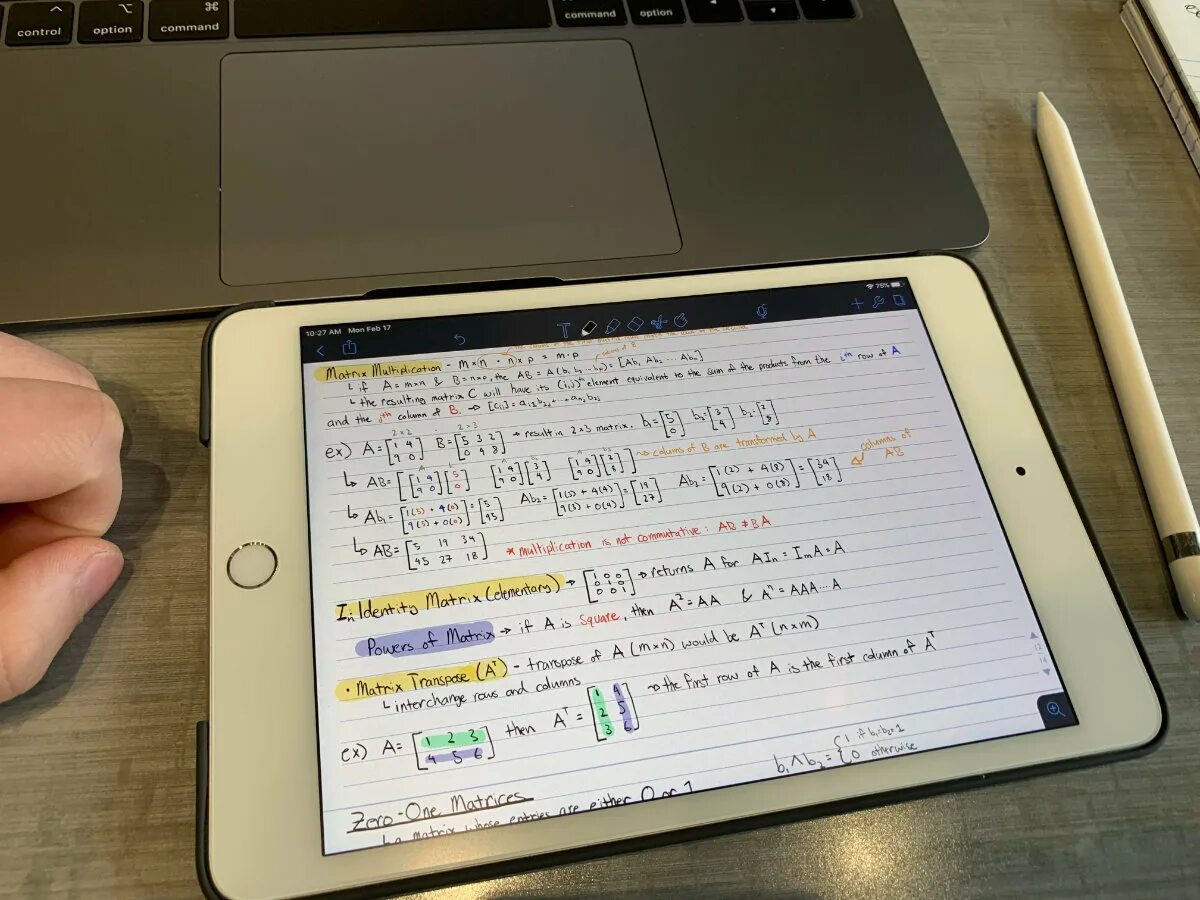 control option command command option
10:27 AM Mon Feb 17 75%
Matrix Multiplication - m×n · n×p = m·p
columns of B
↳ if A = m×n & B = n×p, the AB = A(b₁ b₂ ... bₙ) = [Ab₁ Ab₂ ... Abₙ]
↳ the resulting matrix C will have its (i,j)ᵗʰ element equivalent to the sum of the products from the iᵗʰ row of A
and the jᵗʰ column of B. →
2×2 2×3
ex) A = [1 4; 9 0] B = [5 3 2; 0 4 8] → result in 2×3 matrix. b₁ = [5; 0] b₂ = [3; 4] b₃ = [2; 8]
↳ AB = [[1 4; 9 0][5; 0] [1 4; 9 0][3; 4] [1 4; 9 0][2; 8]] → colums of B are transformed by A
columns of AB
↳ Ab₁ = [1(5) + 4(0); 9(5) + 0(0)] = [5; 45] Ab₂ = [1(3) + 4(4); 9(3) + 0(4)] = [19; 27] Ab₃ = [1(2) + 4(8); 9(2) + 0(8)] = [34; 18]
↳ AB = [5 19 34; 45 27 18] * multiplication is not commutative: AB ≠ BA
Iₙ Identity Matrix (elementary) → [1 0 0; 0 1 0; 0 0 1] → returns A for AIₙ = IₘA = A
Powers of Matrix → if A is square, then A² = AA & Aⁿ = AAA...A
• Matrix Transpose (Aᵀ) - transpose of A (m×n) would be Aᵀ (n×m)
↳ interchange rows and columns
ex) A = [1 2 3; 4 5 6] then Aᵀ = [1 4; 2 5; 3 6] → the first row of A is the first column of Aᵀ
b₁ ∧ b₂ = {1 if b₁=b₂=1
0 otherwise
Zero-One Matrices
↳ a matrix whose entries are either 0 or 1